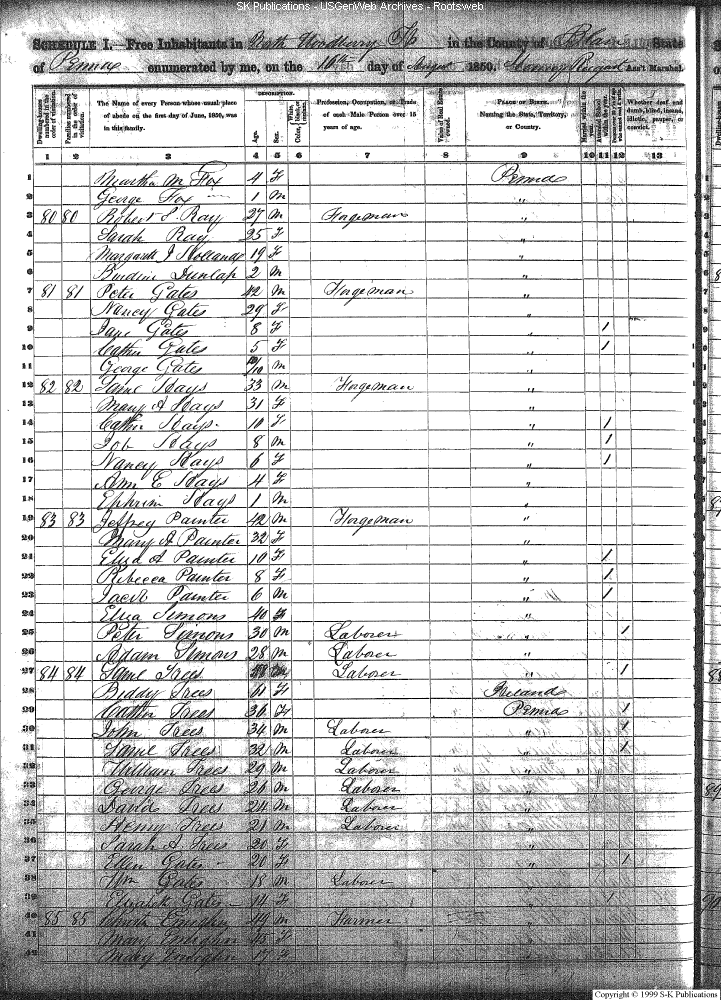 SK Publications - USGenWeb Archives - Rootsweb
SCHEDULE I.—Free Inhabitants in North Woodbury Tp in the County of Blair State
of Penna enumerated by me, on the 16th day of August 1850. Ass't Marshal.
DESCRIPTION.
Dwelling-houses numbered in the order of visitation.
Families numbered in the order of visitation.
The Name of every Person whose usual place of abode on the first day of June, 1850, was in this family.
Age.
Sex.
Color, White, black, or mulatto.
Profession, Occupation, or Trade of each Male Person over 15 years of age.
Value of Real Estate owned.
PLACE OF BIRTH. Naming the State, Territory, or Country.
Married within the year.
Attended School within the year.
Whether deaf and dumb, blind, insane, idiotic, pauper, or convict.
1 2 3 4 5 6 7 8 9 10 11 12 13
1 Martha M Fox 4 F Penna
2 George Fox 1 M "
3 80 80 Robert S Ray 27 M Forgeman "
4 Sarah Ray 25 F "
5 Margarett J Hollands 19 F "
6 Dunlap 2 M "
7 81 81 Peter Gates 42 M Forgeman "
8 Nancy Gates 29 F "
9 Jane Gates 8 F " /
10 Cathn Gates 5 F " /
11 George Gates /10 M "
12 82 82 Saml Hays 33 M Forgeman "
13 Mary A Hays 31 F "
14 Cathn Hays 10 F " /
15 Job Hays 8 M " /
16 Nancy Hays 6 F " /
17 Ann E Hays 4 F "
18 Ephrim Hays 1 M "
19 83 83 Jeffrey Painter 42 M Forgeman "
20 Mary A Painter 32 F "
21 Eliza A Painter 10 F " /
22 Rebecca Painter 8 F " /
23 Jacob Painter 6 M " /
24 Eliza Simons 40 F "
25 Peter Simons 30 M Laborer " /
26 Adam Simons 28 M Laborer "
27 84 84 Saml Trees Laborer " /
28 Biddy Trees 61 F Ireland
29 Cathn Trees 36 F Penna /
30 John Trees 34 M Laborer " /
31 Saml Trees 32 M Laborer " /
32 William Trees 29 M Laborer "
33 George Trees 26 M Laborer "
34 David Trees 24 M Laborer "
35 Henry Trees 21 M Laborer "
36 Sarah A. Trees 20 F "
37 Ellen Gates 20 F " /
38 Wm Gates 18 M Laborer "
39 Elizabeth Gates 14 F " /
40 85 85 Emeghn 44 M Farmer "
41 Mary Emeghn 45 F "
42 Mary Emeghn 17 F "
Copyright © 1999 S-K Publications